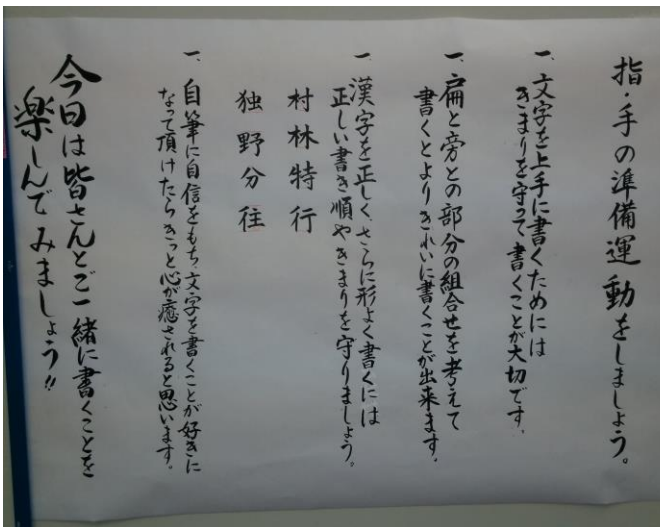 指・手の準備運動をしましょう。
一、文字を上手に書くためには
きまりを守って書くことが大切です。
一、扁と旁との部分の組合せを考えて
書くとよりきれいに書くことが出来ます。
一、漢字を正しく、さらに形よく書くには
正しい書き順やきまりを守りましょう。
村林特行
独野分往
一、自筆に自信をもち文字を書くことが好きに
なって頂けたらきっと心が癒されると思います。
今日は皆さんとご一緒に書くことを
楽しんでみましょう!!